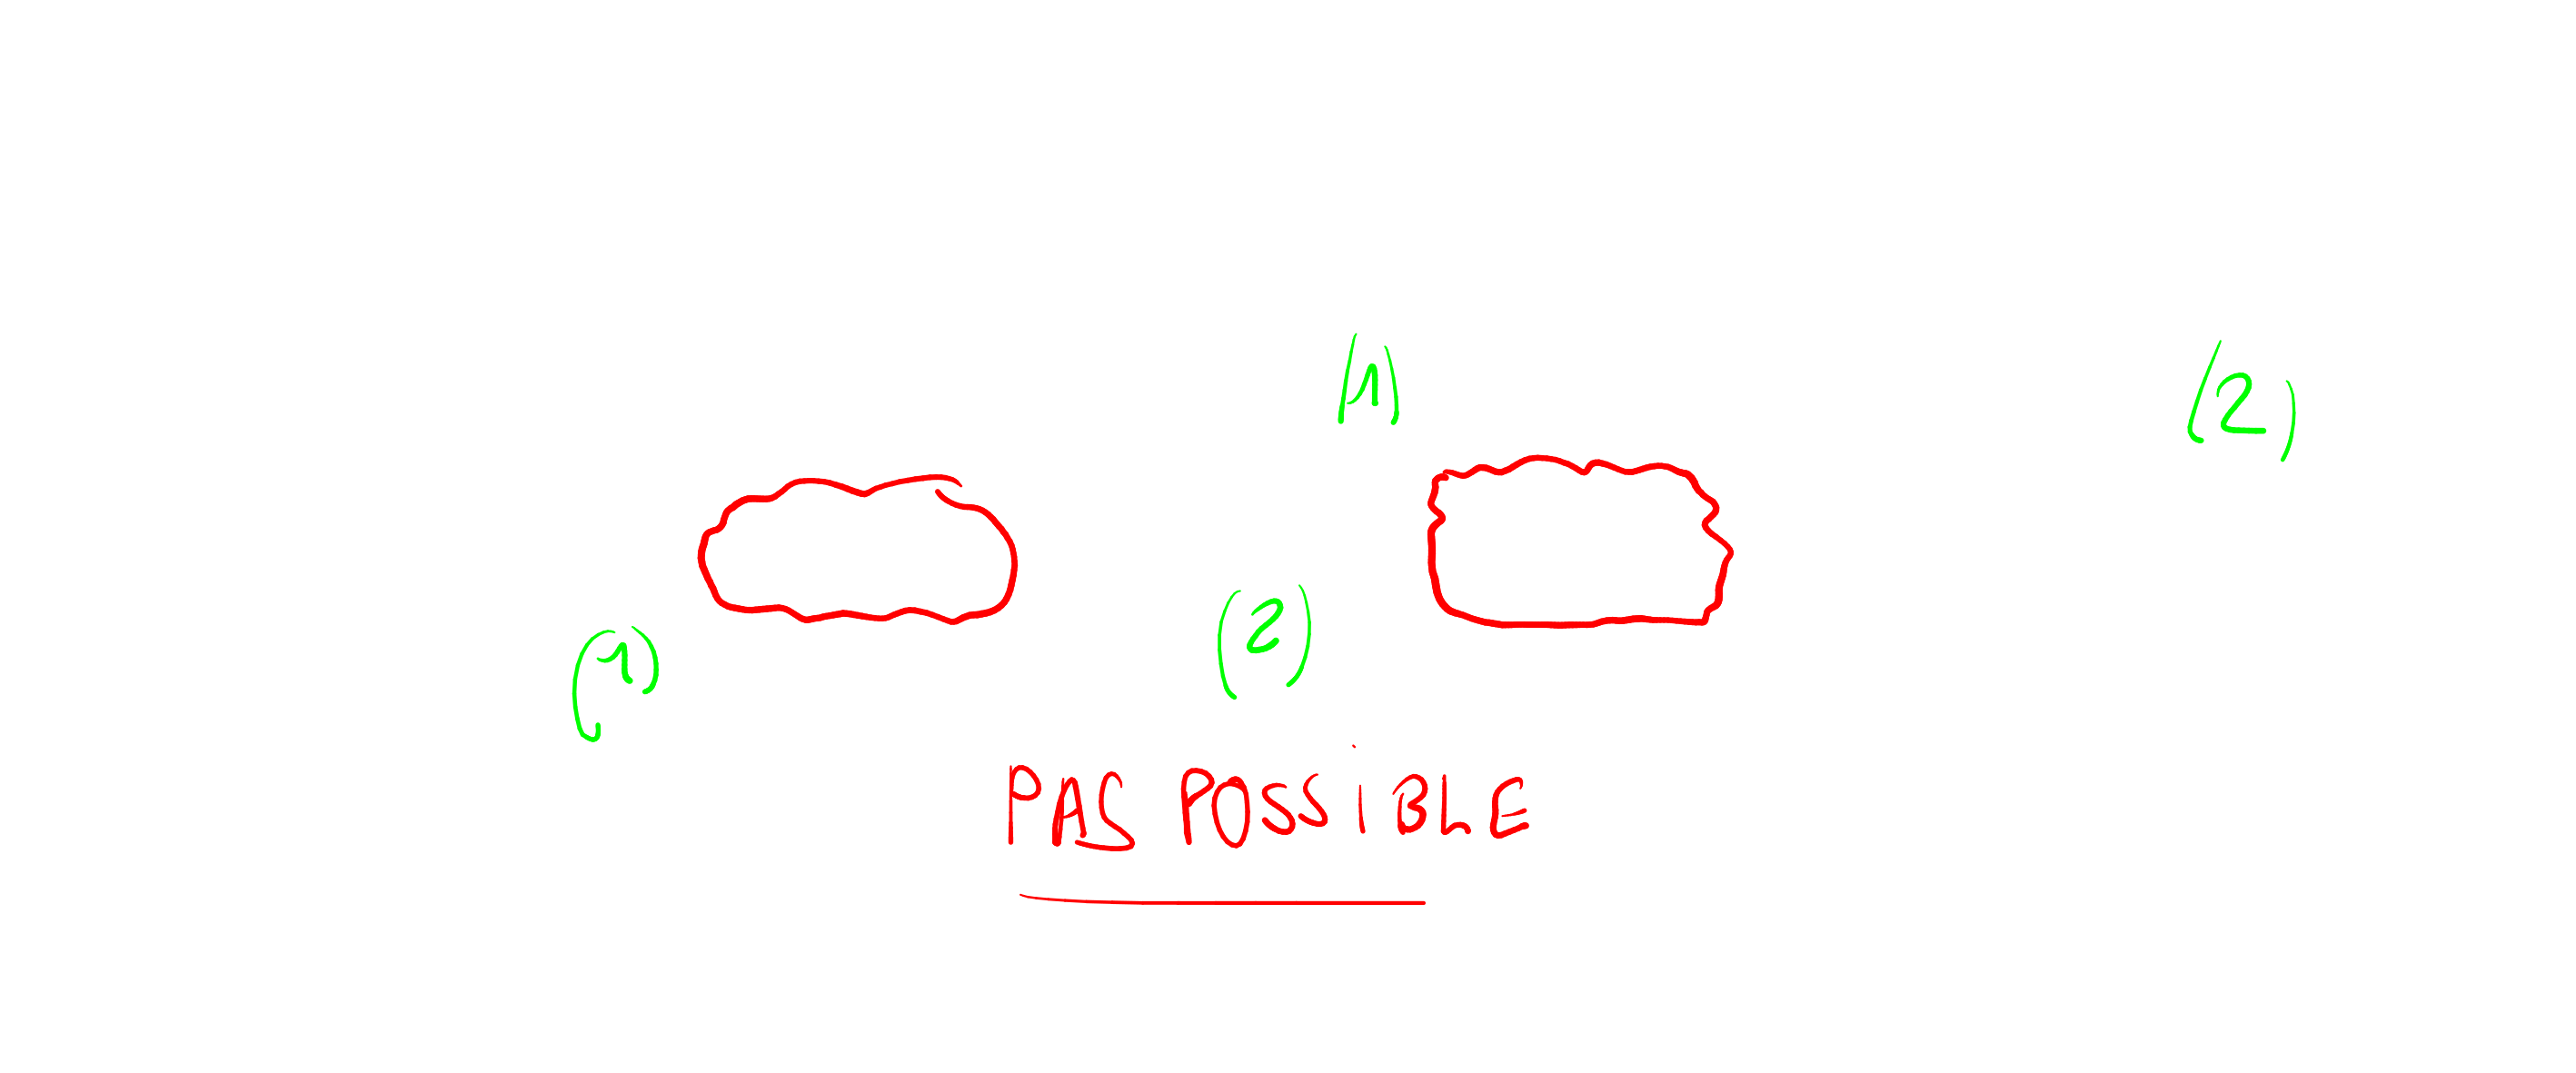 (1)
(2)
(1)
(2)
PAS POSSIBLE